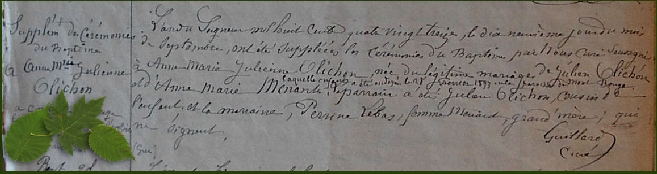 Supplémt de Cérémonies
du Baptême
a Anne Mie Julienne
Olichon
L'an du Seigneur mil huit Cent quatre vingt treize, le dix neuvième jour du mois
de Septembre, ont été suppléées les Cérémonies du Baptême par Nous Curé Soussigné
à Anne Marie Julienne Olichon, née du légitime mariage de Julien Olichon
et d'Anne Marie Menard
laquelle a été
le parrain a été Julien Olichon, cousin de
l'enfant, et la marraine, Perrine Lebas, femme Menard, grand'mère; qui
ne signent,
Guillard
Curé